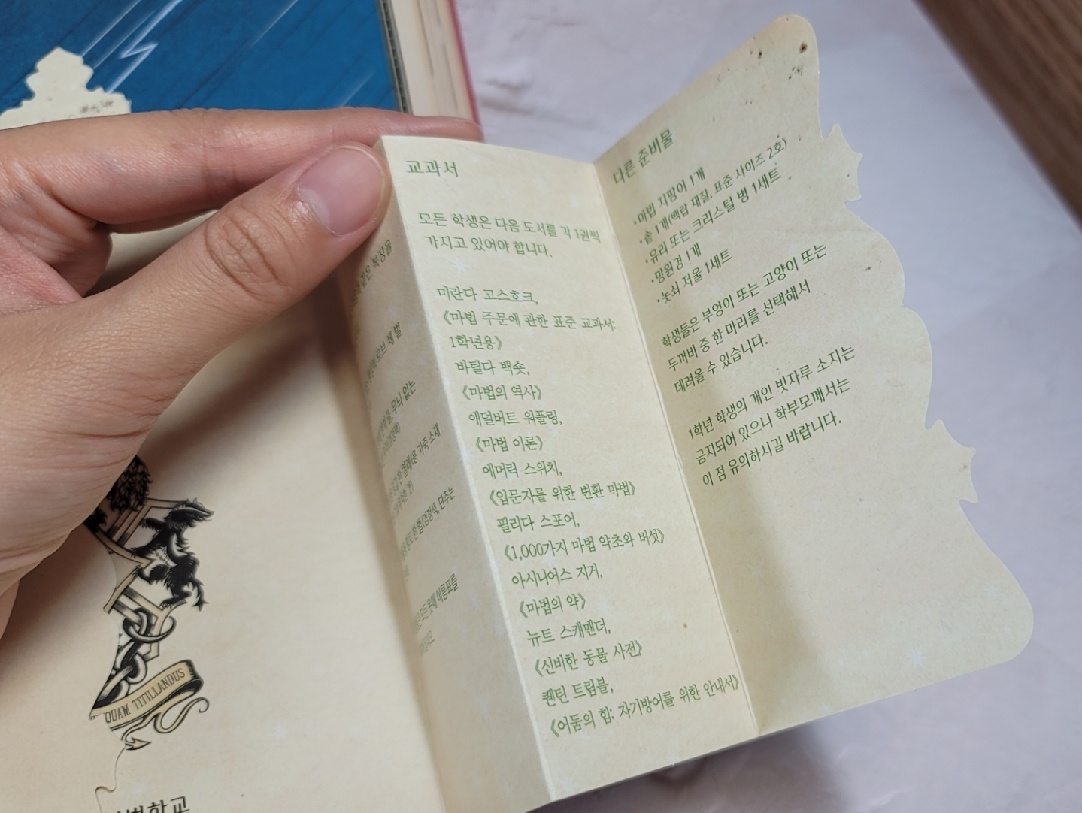 교과서
모든 학생은 다음 도서를 각 1권씩
가지고 있어야 합니다.
미란다 고스호크,
《마법 주문에 관한 표준 교과서:
1학년용》
바틸다 백숏,
《마법의 역사》
애덜버트 워플링,
《마법 이론》
에머릭 스위치,
《입문자를 위한 변환 마법》
필리다 스포어,
《1,000가지 마법 약초와 버섯》
아시니어스 지거,
《마법의 약》
뉴트 스캐맨더,
《신비한 동물 사전》
퀜틴 트림블,
《어둠의 힘: 자기방어를 위한 안내서》
다른 준비물
·마법 지팡이 1개
·솥 1개(백랍 재질, 표준 사이즈 2호)
·유리 또는 크리스털 병 1세트
·망원경 1개
·놋쇠 저울 1세트
학생들은 부엉이 또는 고양이 또는
두꺼비 중 한 마리를 선택해서
데려올 수 있습니다.
1학년 학생의 개인 빗자루 소지는
금지되어 있으니 학부모께서는
이 점 유의하시길 바랍니다.
QUAM TITILLANDUS
학교